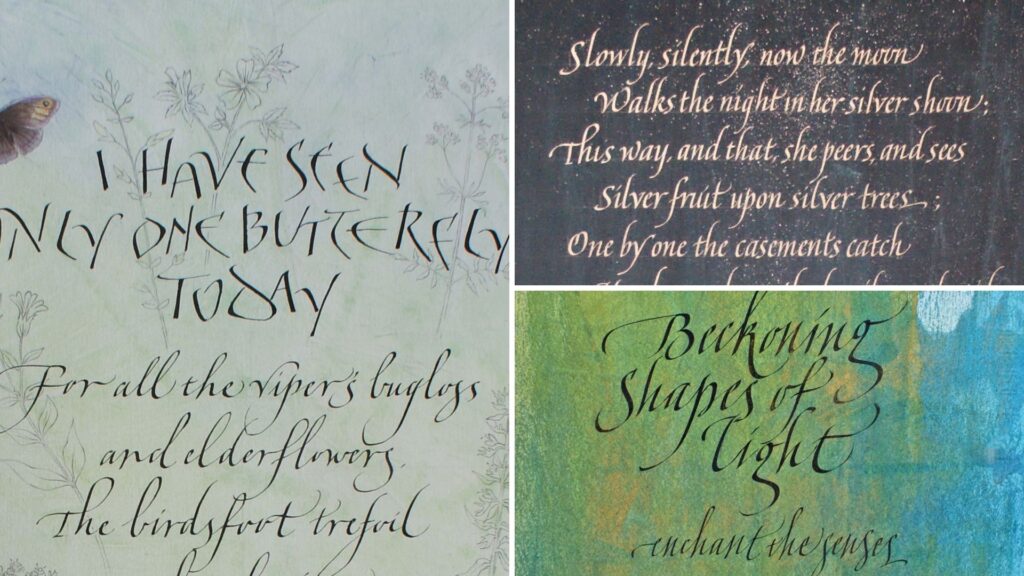 I HAVE SEEN
ONLY ONE BUTTERFLY
TODAY
For all the viper's bugloss
and elderflowers,
The birdsfoot trefoil
Slowly, silently, now the moon
Walks the night in her silver shoon;
This way, and that, she peers, and sees
Silver fruit upon silver trees;
One by one the casements catch
Beckoning
Shapes of
Light
enchant the senses